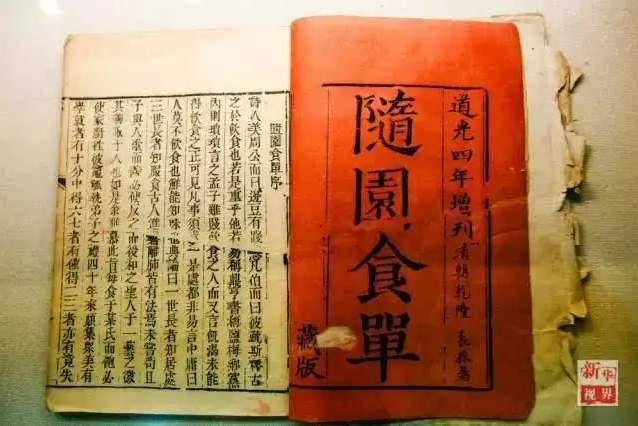 道光四年增刊 清朝乾隆 袁枚著
隨園食單
藏版
隨園食單序
詩人美周公而曰籩豆有踐惡凡伯而曰彼疏斯稗古
之於飲食也若是重乎他若易稱鼎亨書稱鹽梅鄉黨
內則瑣瑣言之孟子雖賤飲食之人而又言飢渴未能
得飲食之正可見凡事須求一是處都非易言中庸曰
人莫不飲食也鮮能知味也典論曰一世長者知居處
三世長者知服食古人進鬐離肺皆有法焉未嘗苟且
子與人歌而善必使反之而後和之聖人于一藝之微
其善取于人也如是余雅慕此旨每食于某氏而飽必
使家廚往彼竈觚執弟子之禮四十年來頗集眾美有
學就者有十分中得六七者有僅得二三者亦有竟失
新華
視界